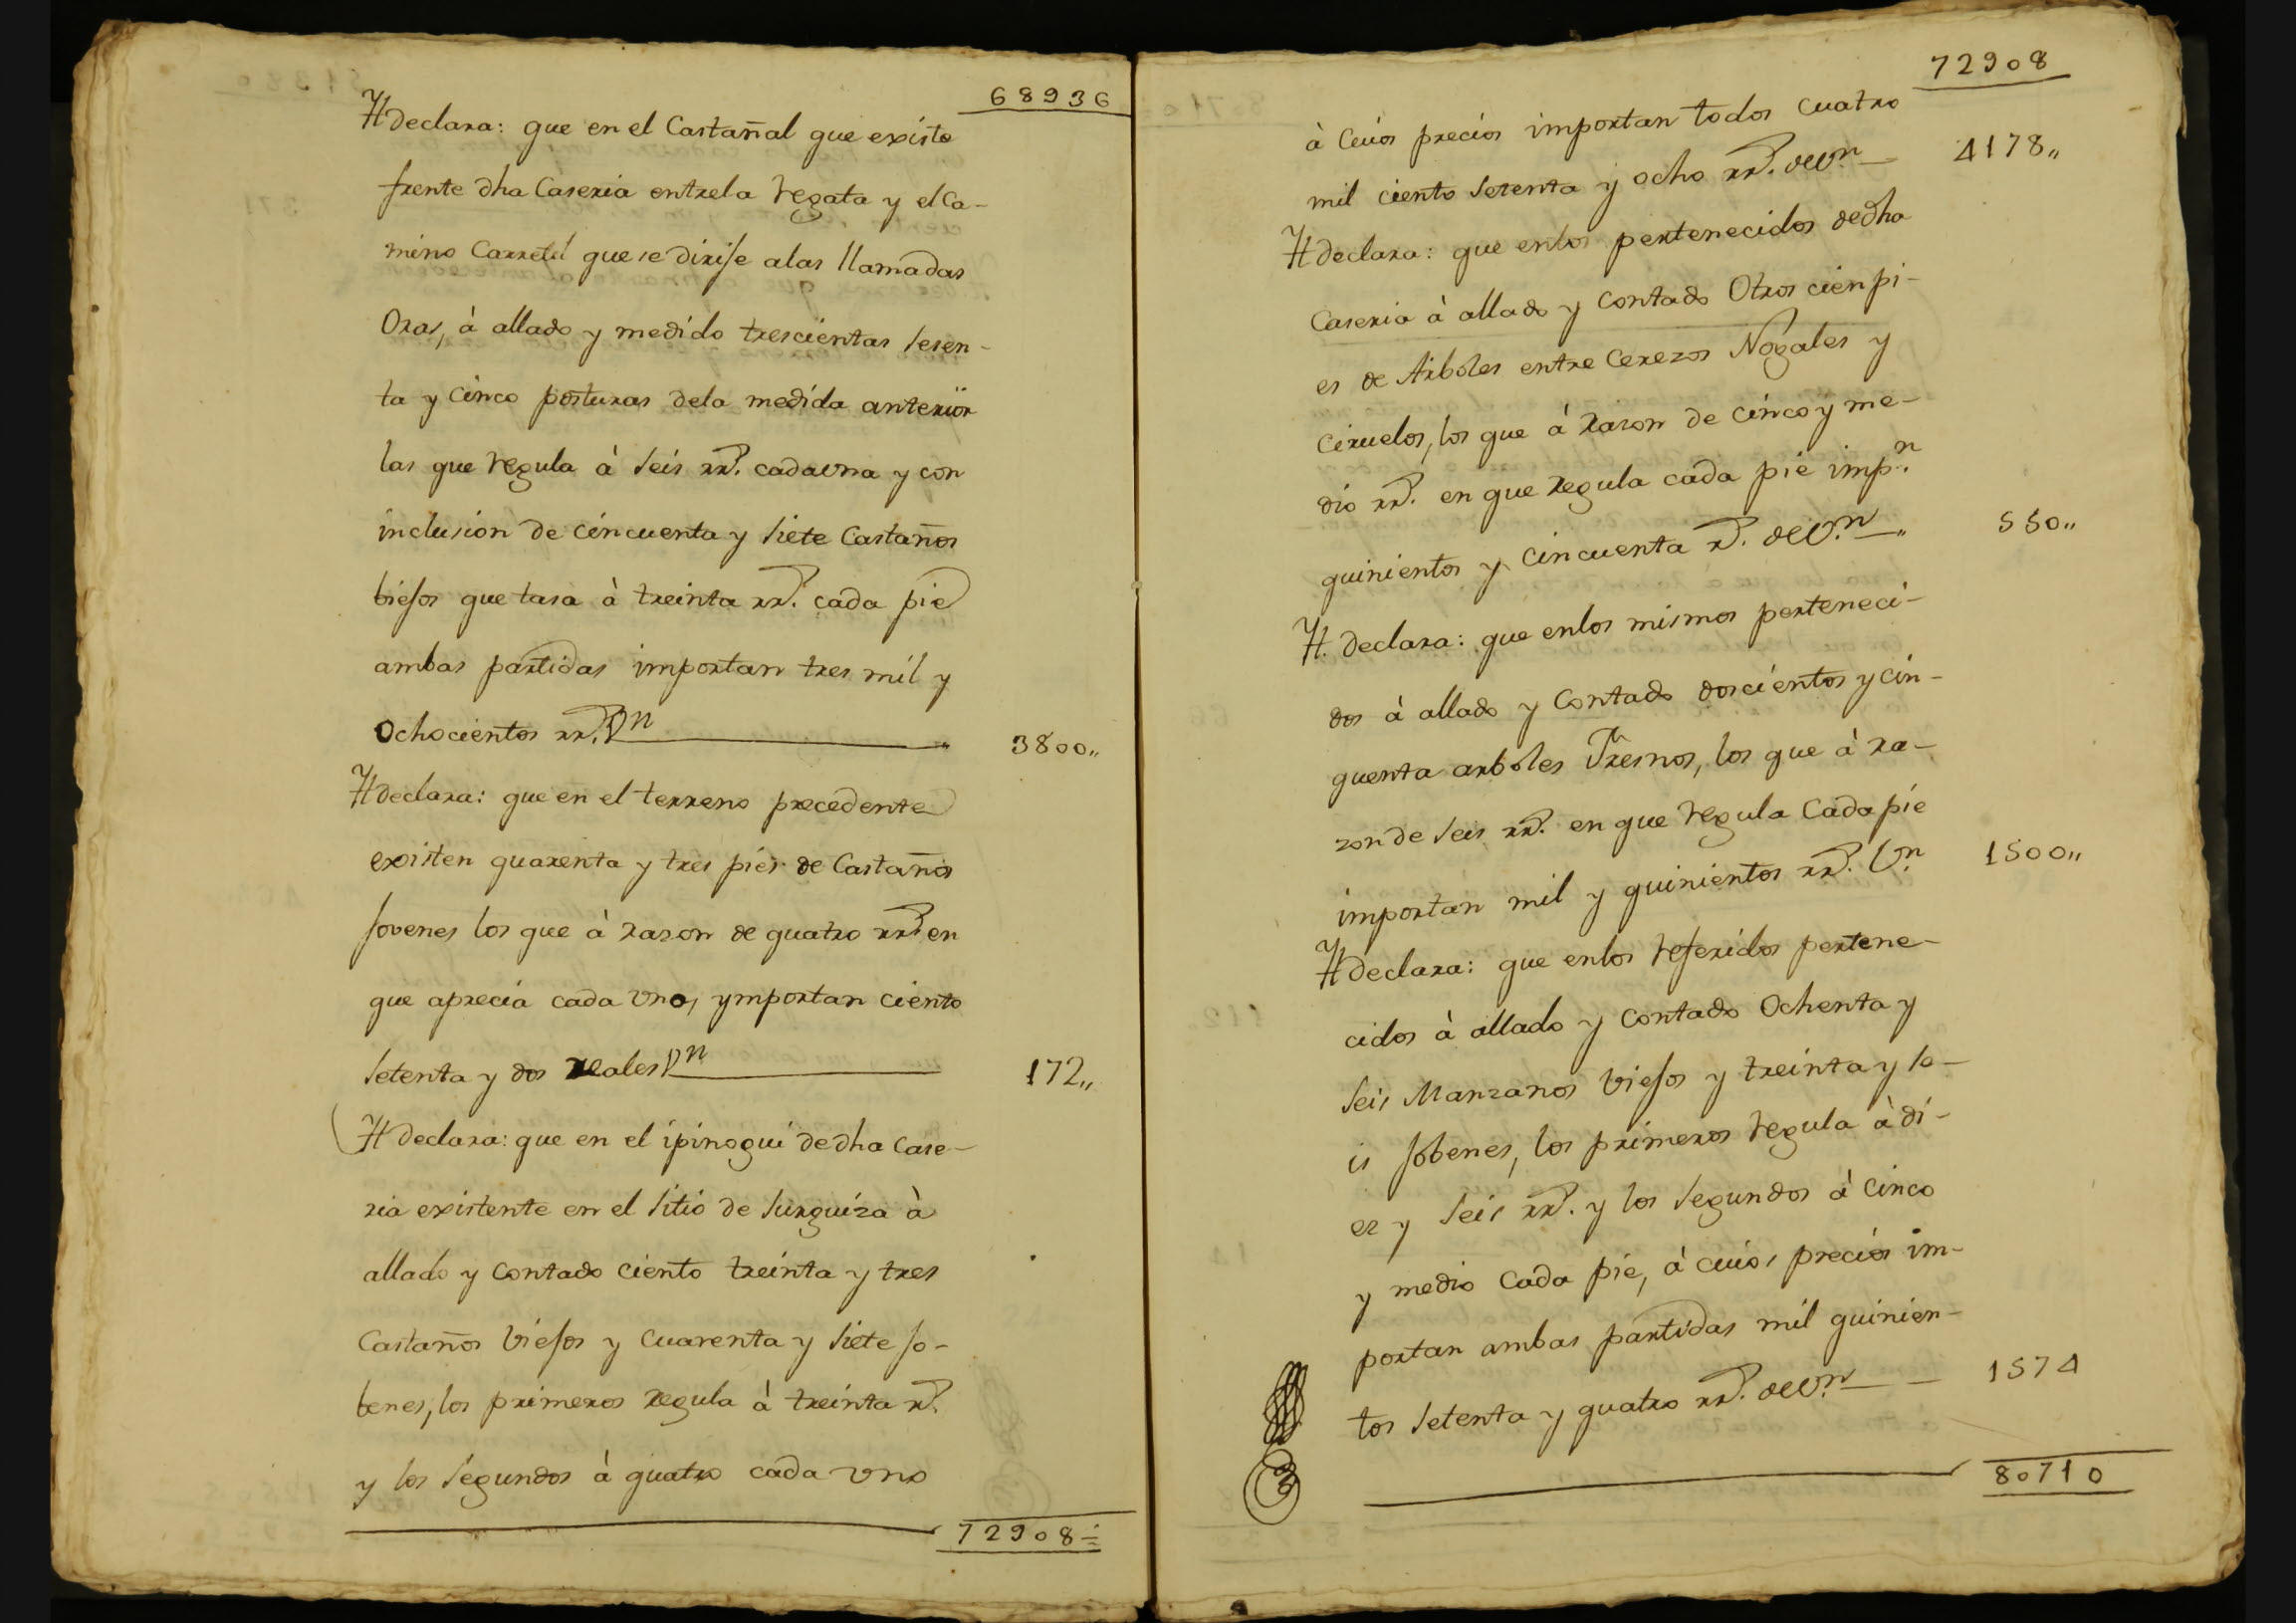 68936
Yt declara: que en el Castañal que existe
frente dha Caseria entrela regata y el Ca-
mino Carretil que se dirije alas llamadas
Oras, à allado y medido trescientas sesen-
ta y cinco posturas dela medida anterior
las que regula à seis rrs. cadauna y con
inclusion de cincuenta y siete Castaños
biejos que tasa à treinta rrs. cada pie
ambas partidas importan tres mil y
Ochocientos rrs. Vn 3800,,
Yt declara: que en el terreno precedente
existen quarenta y tres pies de Castaños
jovenes los que à razon de quatro rrs en
que aprecia cada uno, ymportan ciento
setenta y dos reales Vn 172,,
Yt declara: que en el ipinogui de dha Case-
ria existente en el sitio de surguiza à
allado y contado ciento treinta y tres
Castaños biejos y cuarenta y siete jo-
benes, los primeros regula à treinta rs.
y los segundos à quatro cada uno
72908
72908
à cuios precios importan todos cuatro
mil ciento setenta y ocho rrs. de Vn 4178,,
Yt declara: que enlos pertenecidos dedha
Caseria à allado y contado Otros cien pi-
es de Arboles entre Cerezos Nogales y
Ciruelos, los que à razon de cinco y me-
dio rrs. en que regula cada pie impn.
quinientos y cincuenta rs. de Vn. 550,,
Yt. declara: que enlos mismos perteneci-
dos à allado y contado doscientos y cin-
quenta arboles Fresnos, los que à ra-
zon de seis rrs. en que regula cada pie
importan mil y quinientos rrs. Vn. 1500,,
Yt declara: que enlos referidos pertene-
cidos à allado y contado Ochenta y
seis Manzanos biejos y treinta y se-
is jobenes, los primeros regula à di-
ez y seis rrs. y los segundos à cinco
y medio cada pie, à cuios precios im-
portan ambas partidas mil quinien-
tos setenta y quatro rrs. de Vn. 1574
80710